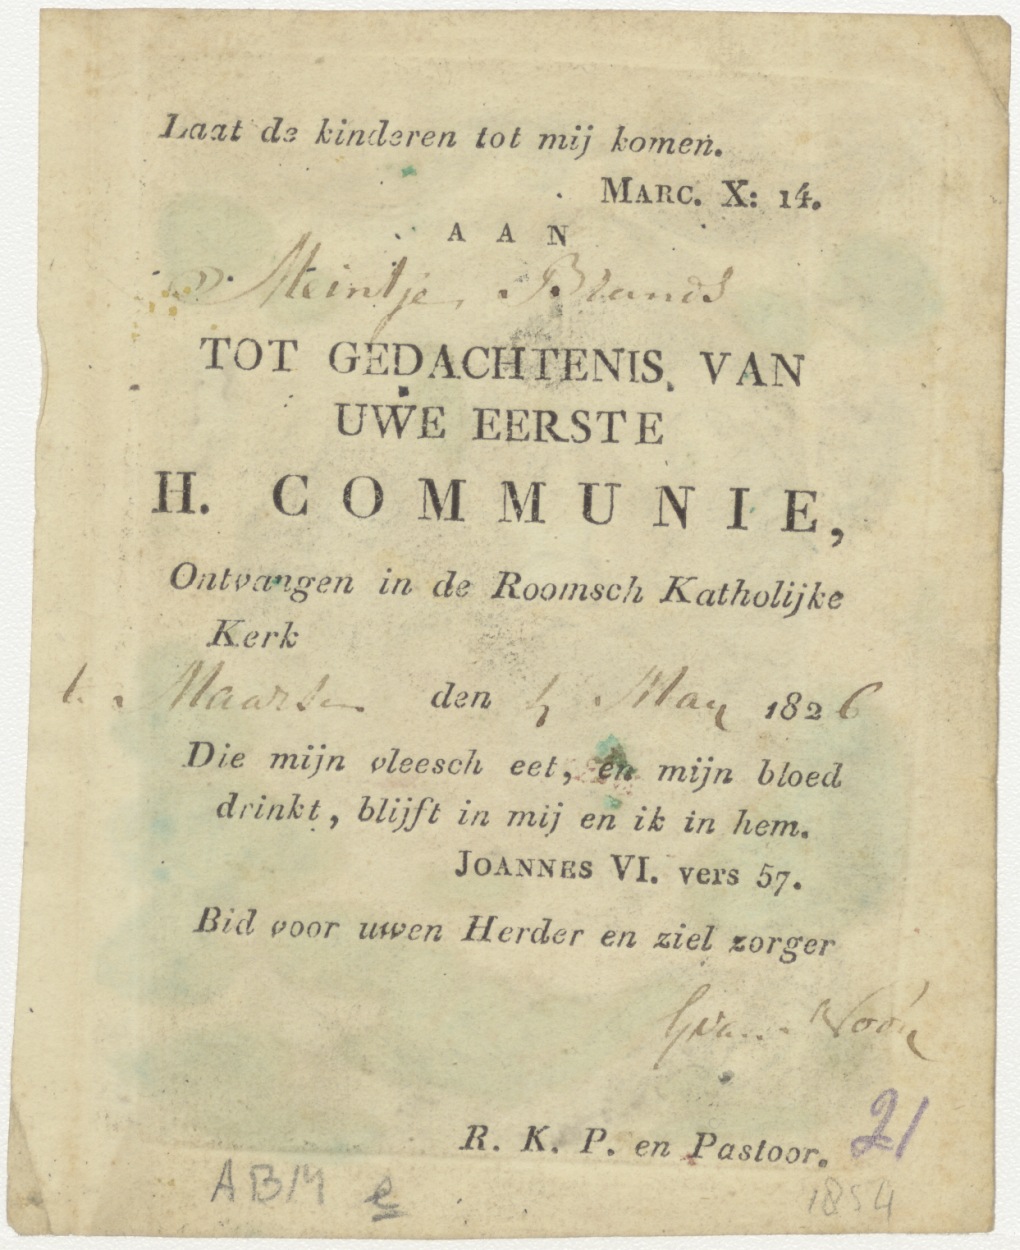 Laat de kinderen tot mij komen.
MARC. X: 14.
AAN
Meintje Brands
TOT GEDACHTENIS VAN
UWE EERSTE
H. COMMUNIE,
Ontvangen in de Roomsch Katholijke
Kerk
Maarsen den 4 May 1826
Die mijn vleesch eet, en mijn bloed
drinkt, blijft in mij en ik in hem.
JOANNES VI. vers 57.
Bid voor uwen Herder en ziel zorger
R. K. P. en Pastoor.
21
ABM
1854